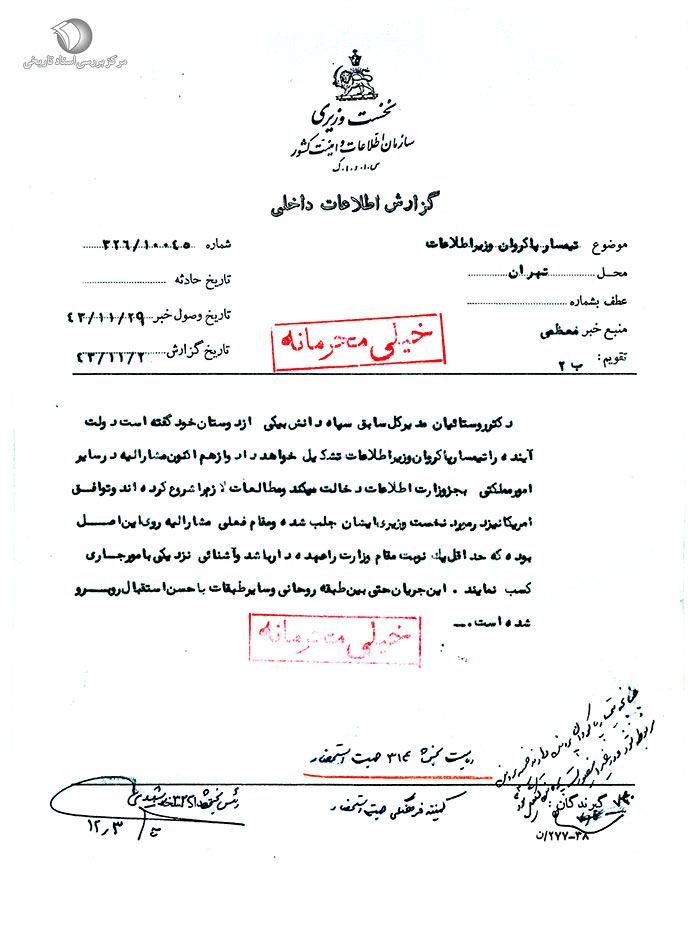 مرکز بررسی اسناد تاریخی
نخست وزیری
سازمان اطلاعات و امنیت کشور
س.ا.و.ا.ک
گزارش اطلاعات داخلی
موضوع تیمسار پاکروان وزیر اطلاعات
شماره ۳۲۶/۱۰۰۴۵
محل تهران
تاریخ حادثه
عطف بشماره
تاریخ وصول خبر ۴۳/۱۱/۲۹
منبع خبر
تاریخ گزارش
تقویم : ب ۲
خیلی محرمانه
دکتر روستائیان مدیرکل سابق سپاه دانش بیکی از دوستان خود گفته است دولت
آینده را تیمسار پاکروان وزیر اطلاعات تشکیل خواهد داد و از هم اکنون مشارالیه در سایر
امور مملکتی بجز وزارت اطلاعات دخالت میکند و مطالعات لازم را شروع کرده اند و توافق
امریکا نیز در مورد نخست وزیری ایشان جلب شده و مقام فعلی مشارالیه روی این اصل
بوده که حداقل یک نوبت مقام وزارت را عهده دار باشد و آشنائی نزدیکی با امور جاری
کسب نمایند . این جریان حتی بین طبقه روحانی و سایر طبقات با حسن استقبال روبرو
شده است .
خیلی محرمانه
۳۱۴ جهت استحضار
رئیس بخش ۳۲۶
جهت استحضار
گیرندگان :
۱۲٫۳
۲۷۷-۳۸/ن